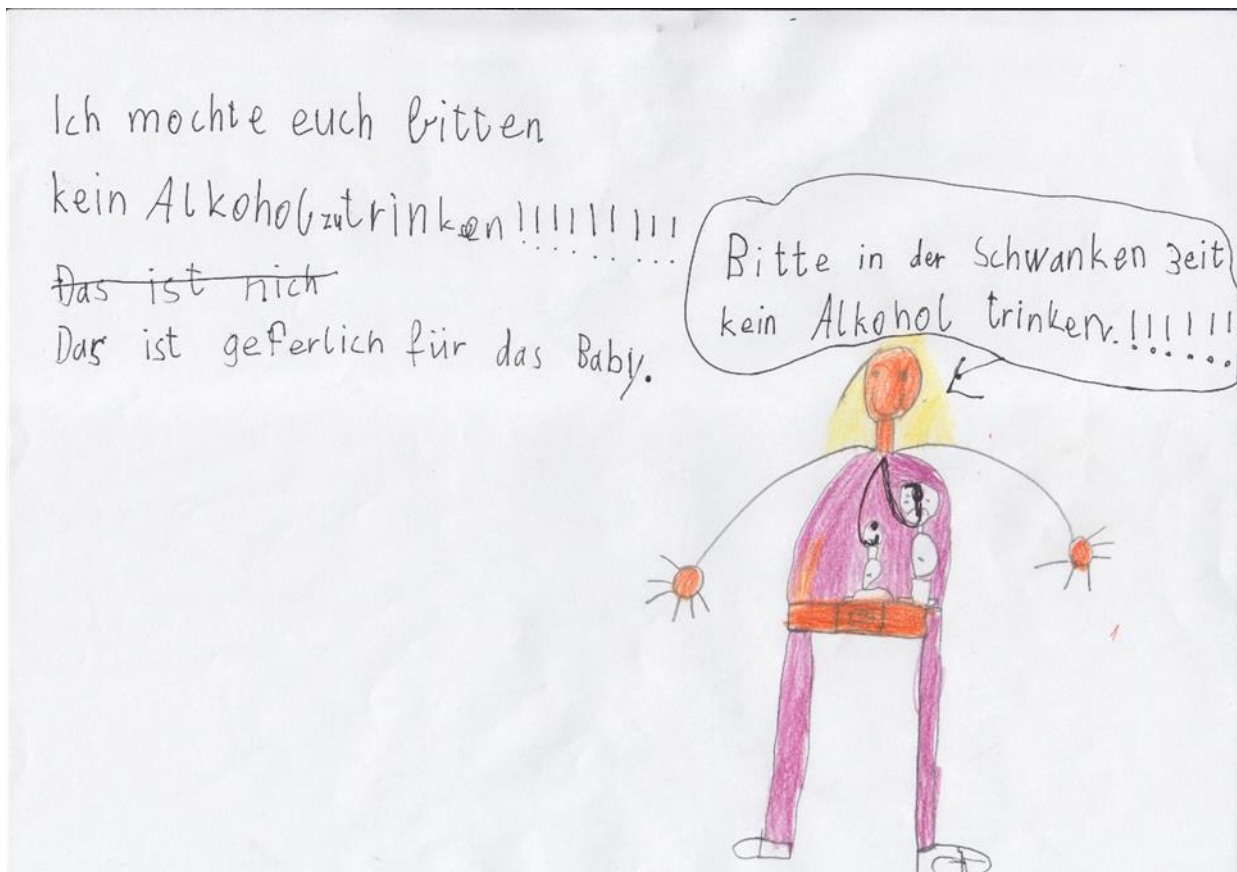 Ich mochte euch bitten
kein Alkohol zu trinken!!!!!!!!!
Das ist nich
Das ist geferlich für das Baby.
Bitte in der Schwanken Zeit
kein Alkohol trinken.!!!!!!